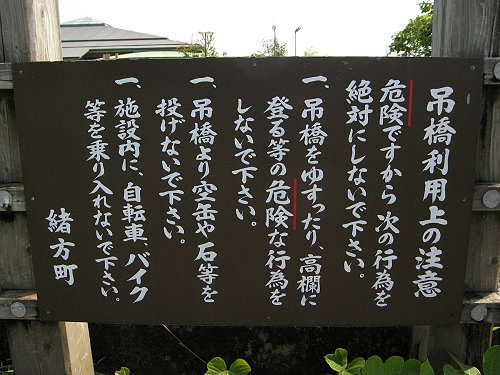 吊橋利用上の注意
危険ですから次の行為を
絶対にしないで下さい。
一、吊橋をゆすったり、高欄に
登る等の危険な行為を
しないで下さい。
一、吊橋より空缶や石等を
投げないで下さい。
一、施設内に、自転車、バイク
等を乗り入れないで下さい。
緒方町